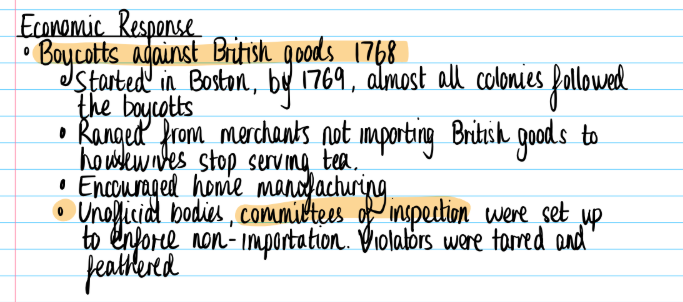 Economic Response
• Boycotts against British goods 1768
• Started in Boston, by 1769, almost all colonies followed
the boycotts
• Ranged from merchants not importing British goods to
housewives stop serving tea.
• Encouraged home manufacturing
• Unofficial bodies, committees of inspection were set up
to enforce non-importation. Violators were tarred and
feathered